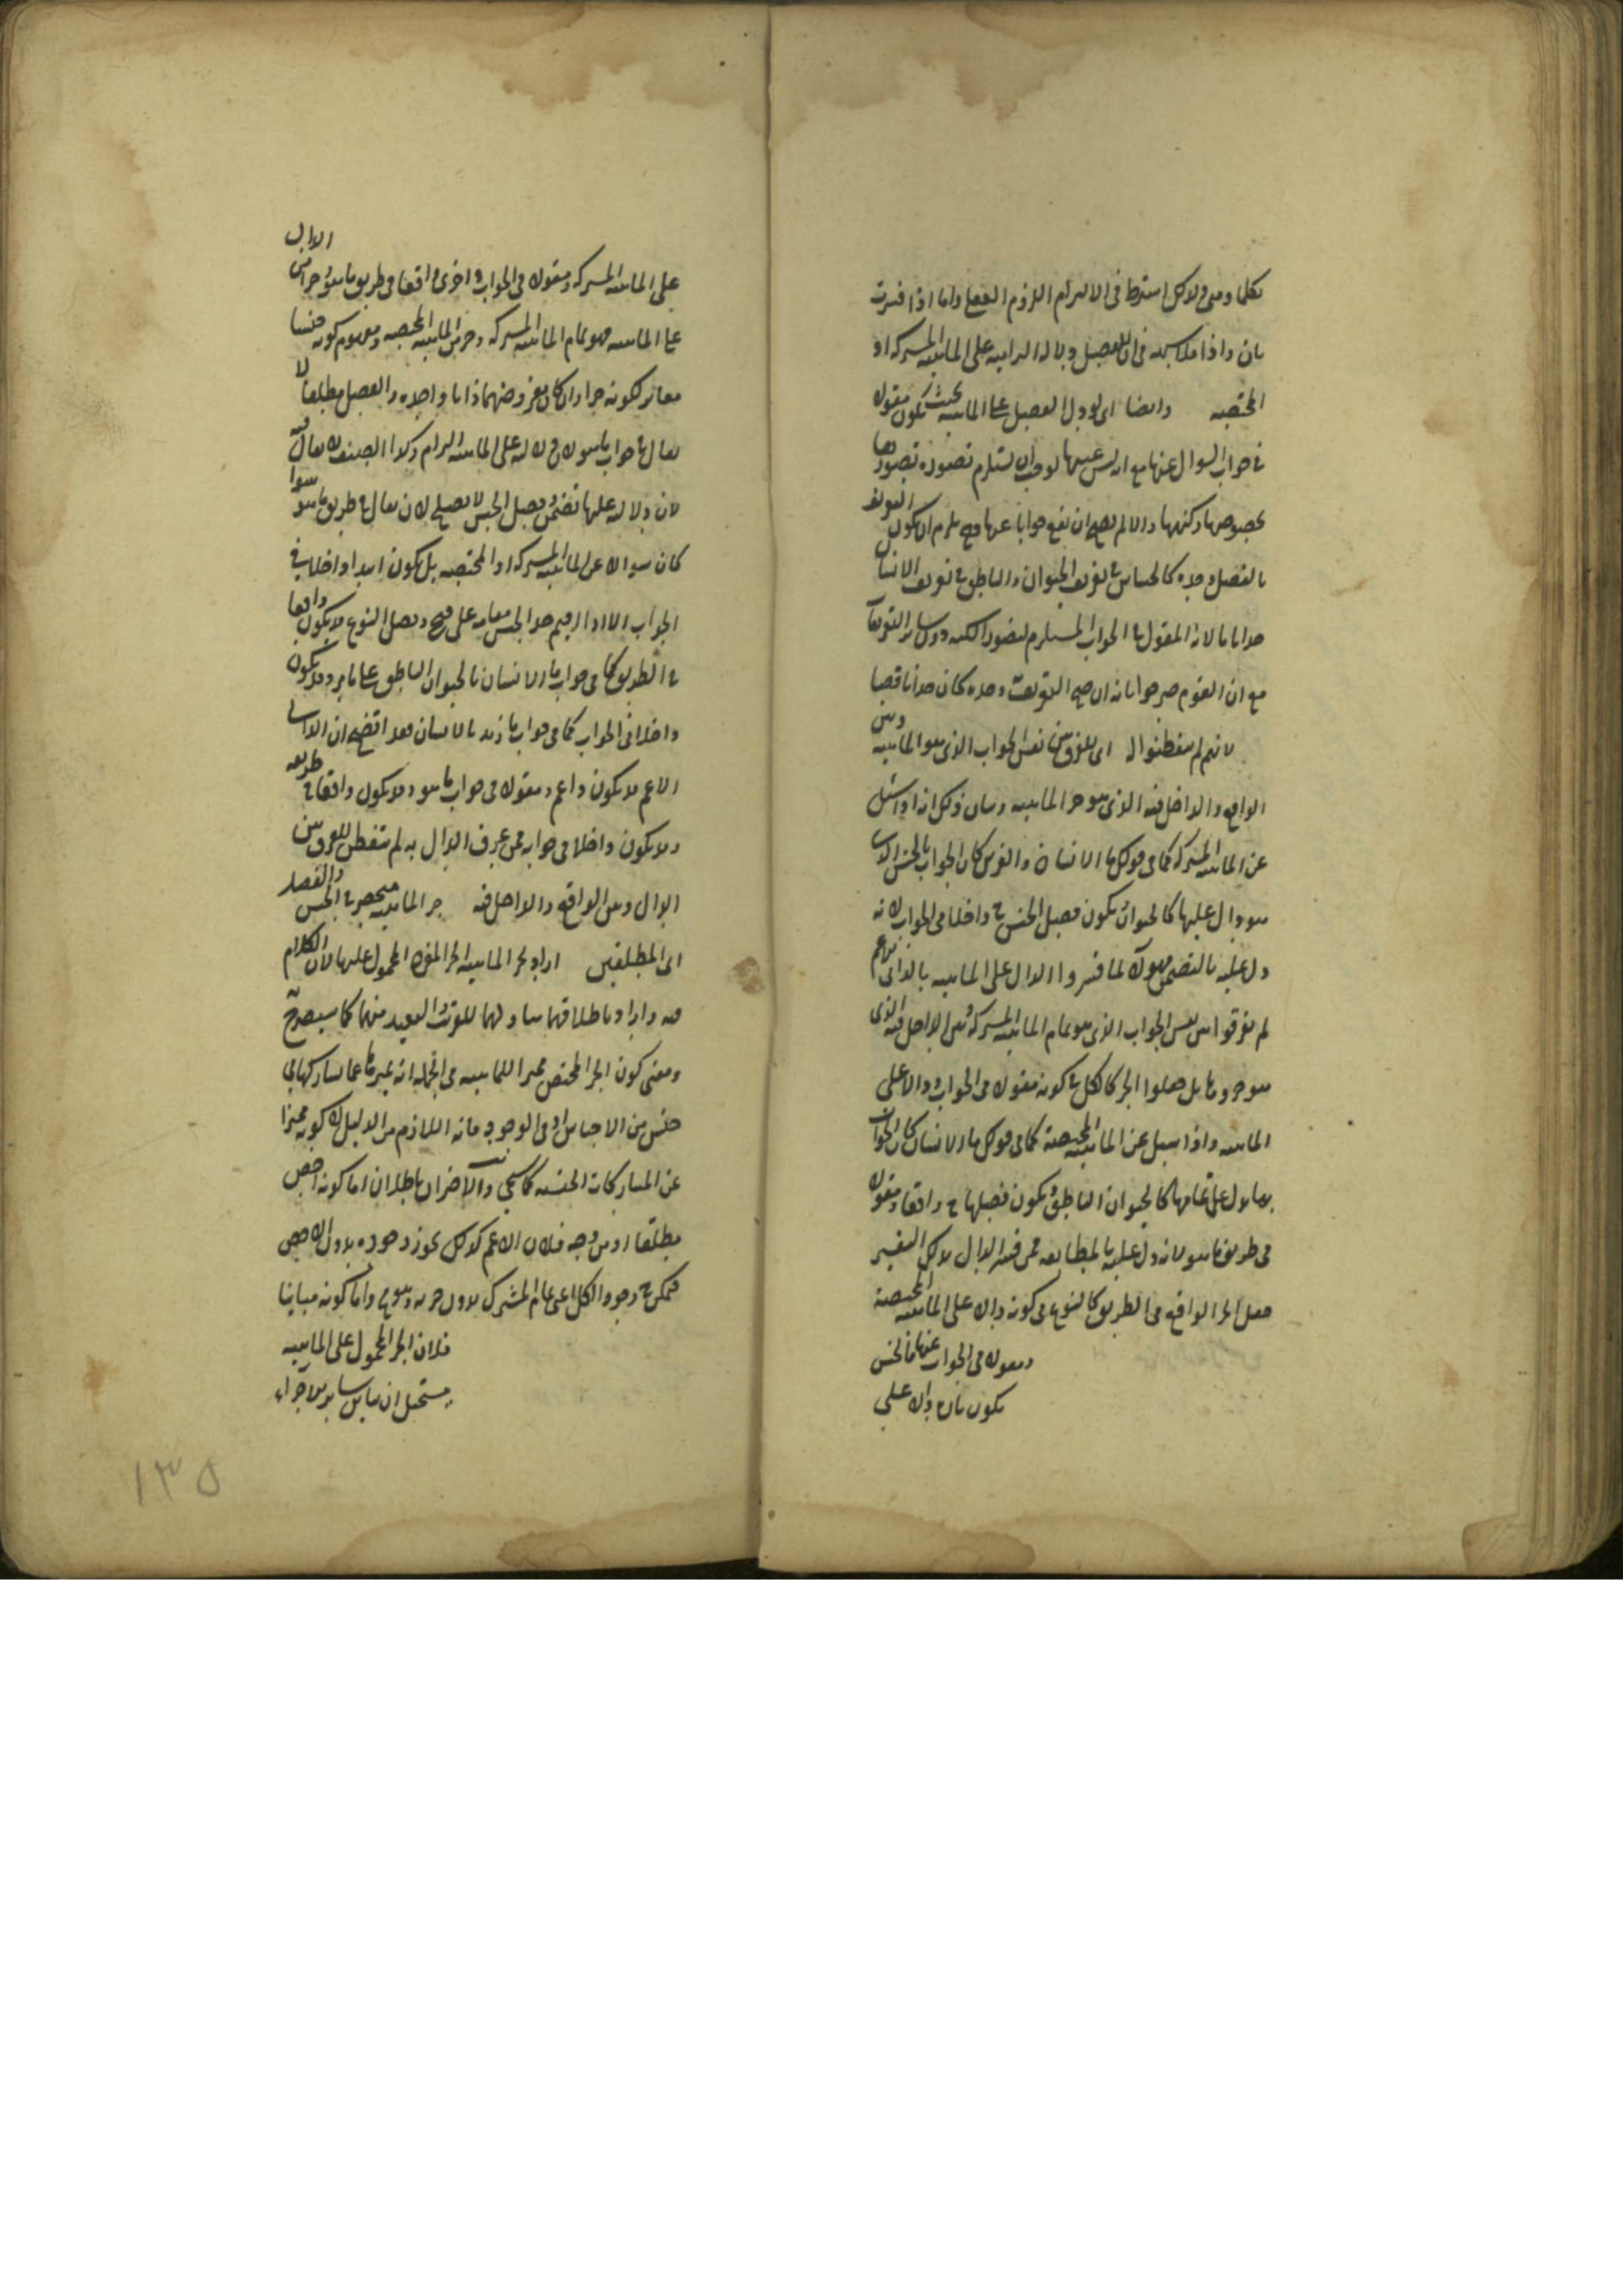 بان واذا فلا شبهة فى ان للفصل دلالة التزامية على الماهية المشتركة او
المختصة وايضا اى لو دل الفصل على الماهية بحيث يكون مقولا
فى جواب السوال عنها مع انه ليس عينها لوجب ان يستلزم تصوره تصورها
بخصوصها وكنهها والا لم يصح ان يقع جوابا عنها وح يلزم ان يكون التعريف
بالفصل وحده كالحساس فى تعريف الحيوان والناطق فى تعريف الانسان
حدا تاما لانه المقول فى الجواب المستلزم لتصور الكنه دون ساير التعريفات
مع ان القوم صرحوا بانه ان صح التعريف وحده كان حدا ناقصا
لانهم لم يتفطنوا اى للفرق بين نفس الجواب الذى هو الماهية وبين
الواقع والداخل فيه الذى هو جزء الماهية وبيان ذلك انه اذا سئل
عن الماهية المشتركة كما فى قولك ما الانسان والفرس كان الجواب بالجنس الذى
هو دال عليها كالحيوان يكون فصل الجنس ح داخلا فى الجواب لانه
دل عليه بالتضمن فهولاء لما فسروا الدال على الماهية بالذاتى الاعم
لم يفرقوا بين نفس الجواب الذى هو تمام الماهية المشتركة وبين الداخل فيه الذى
هو جزوها بل جعلوا الجزء كالكل فى كونه مقولا فى الجواب ودالا على
الماهية واذا سئل عن الماهية المختصة كما فى قولك ما الانسان كان الجواب
بما يدل على تمامها كالحيوان الناطق ويكون فصلها ح واقعا ومقولا
فى طريق ما هو لانه دل عليه بالمطابقة فمن فسر الدال بذلك التفسير
جعل الجزء الواقع فى الطريق كالنوع فى كونه دالا على الماهية المختصة
ومقولا فى الجواب عنها فالجنس
يكون تارة دالا على
الدال
على الماهية المشتركة ومقولا فى الجواب واخرى واقعا فى طريق ما هو وجزءا من
على الماهية فهو تمام الماهية المشتركة وجزء من الماهية المختصة ومفهوم كونه جنسا
مغاير لكونه جزءا وان كان معروضهما ذاتا واحدة والفصل مطلقا لا
يقال فى جواب ما هو لان دلالته على الماهية التزام وكذا الصنف لا يقال فيه
لان دلالته عليها تضمن وفصل الجنس لا يصلح لان يقال فى طريق ما هو سوا
كان سوالا عن الماهية المشتركة او المختصة بل يكون ابدا داخلا فى
الجواب الا اذا اقيم حد الجنس مقامه على قبح وفصل النوع قد يكون واقعا
فى الطريق كما فى جواب ما الانسان بالحيوان الناطق على ما مر وقد يكون
داخلا فى الجواب كما فى جواب ما زيد بالانسان فقد اتضح ان الذاتى
الاعم قد يكون دالا ومقولا فى جواب ما هو وقد يكون واقعا فى طريقه
وقد يكون داخلا فى جوابه فمن عرف الدال به لم يتفطن للفرق بين
الدال وبين الواقع والداخل فيه جزء الماهية منحصر فى الجنس والفصل
اى المطلقين اراد بجزء الماهية الجزء المفرد المحمول عليها لان الكلام
فيه واراد باطلاقهما تناولهما للقريب والبعيد منهما كما سيصرح به
ومعنى كون الجزء المختص مميزا للماهية فى الجملة انه يميزها عما يشاركها فى
جنس من الاجناس او فى الوجود فانه اللازم من الدليل لا كونه مميزا
عن المشاركات الجنسية كما سيجى والاخيران باطلان اما كونه اخص
مطلقا او من وجه فلان الاعم كذلك يجوز وجوده بدون الاخص
فيمكن ح وجود الكل اعنى تمام المشترك بدون جزئه وهو مح واما كونه مباينا
فلان الجزء المحمول على الماهية
يستحيل ان يباين ساير الاجزاء
١٣٥